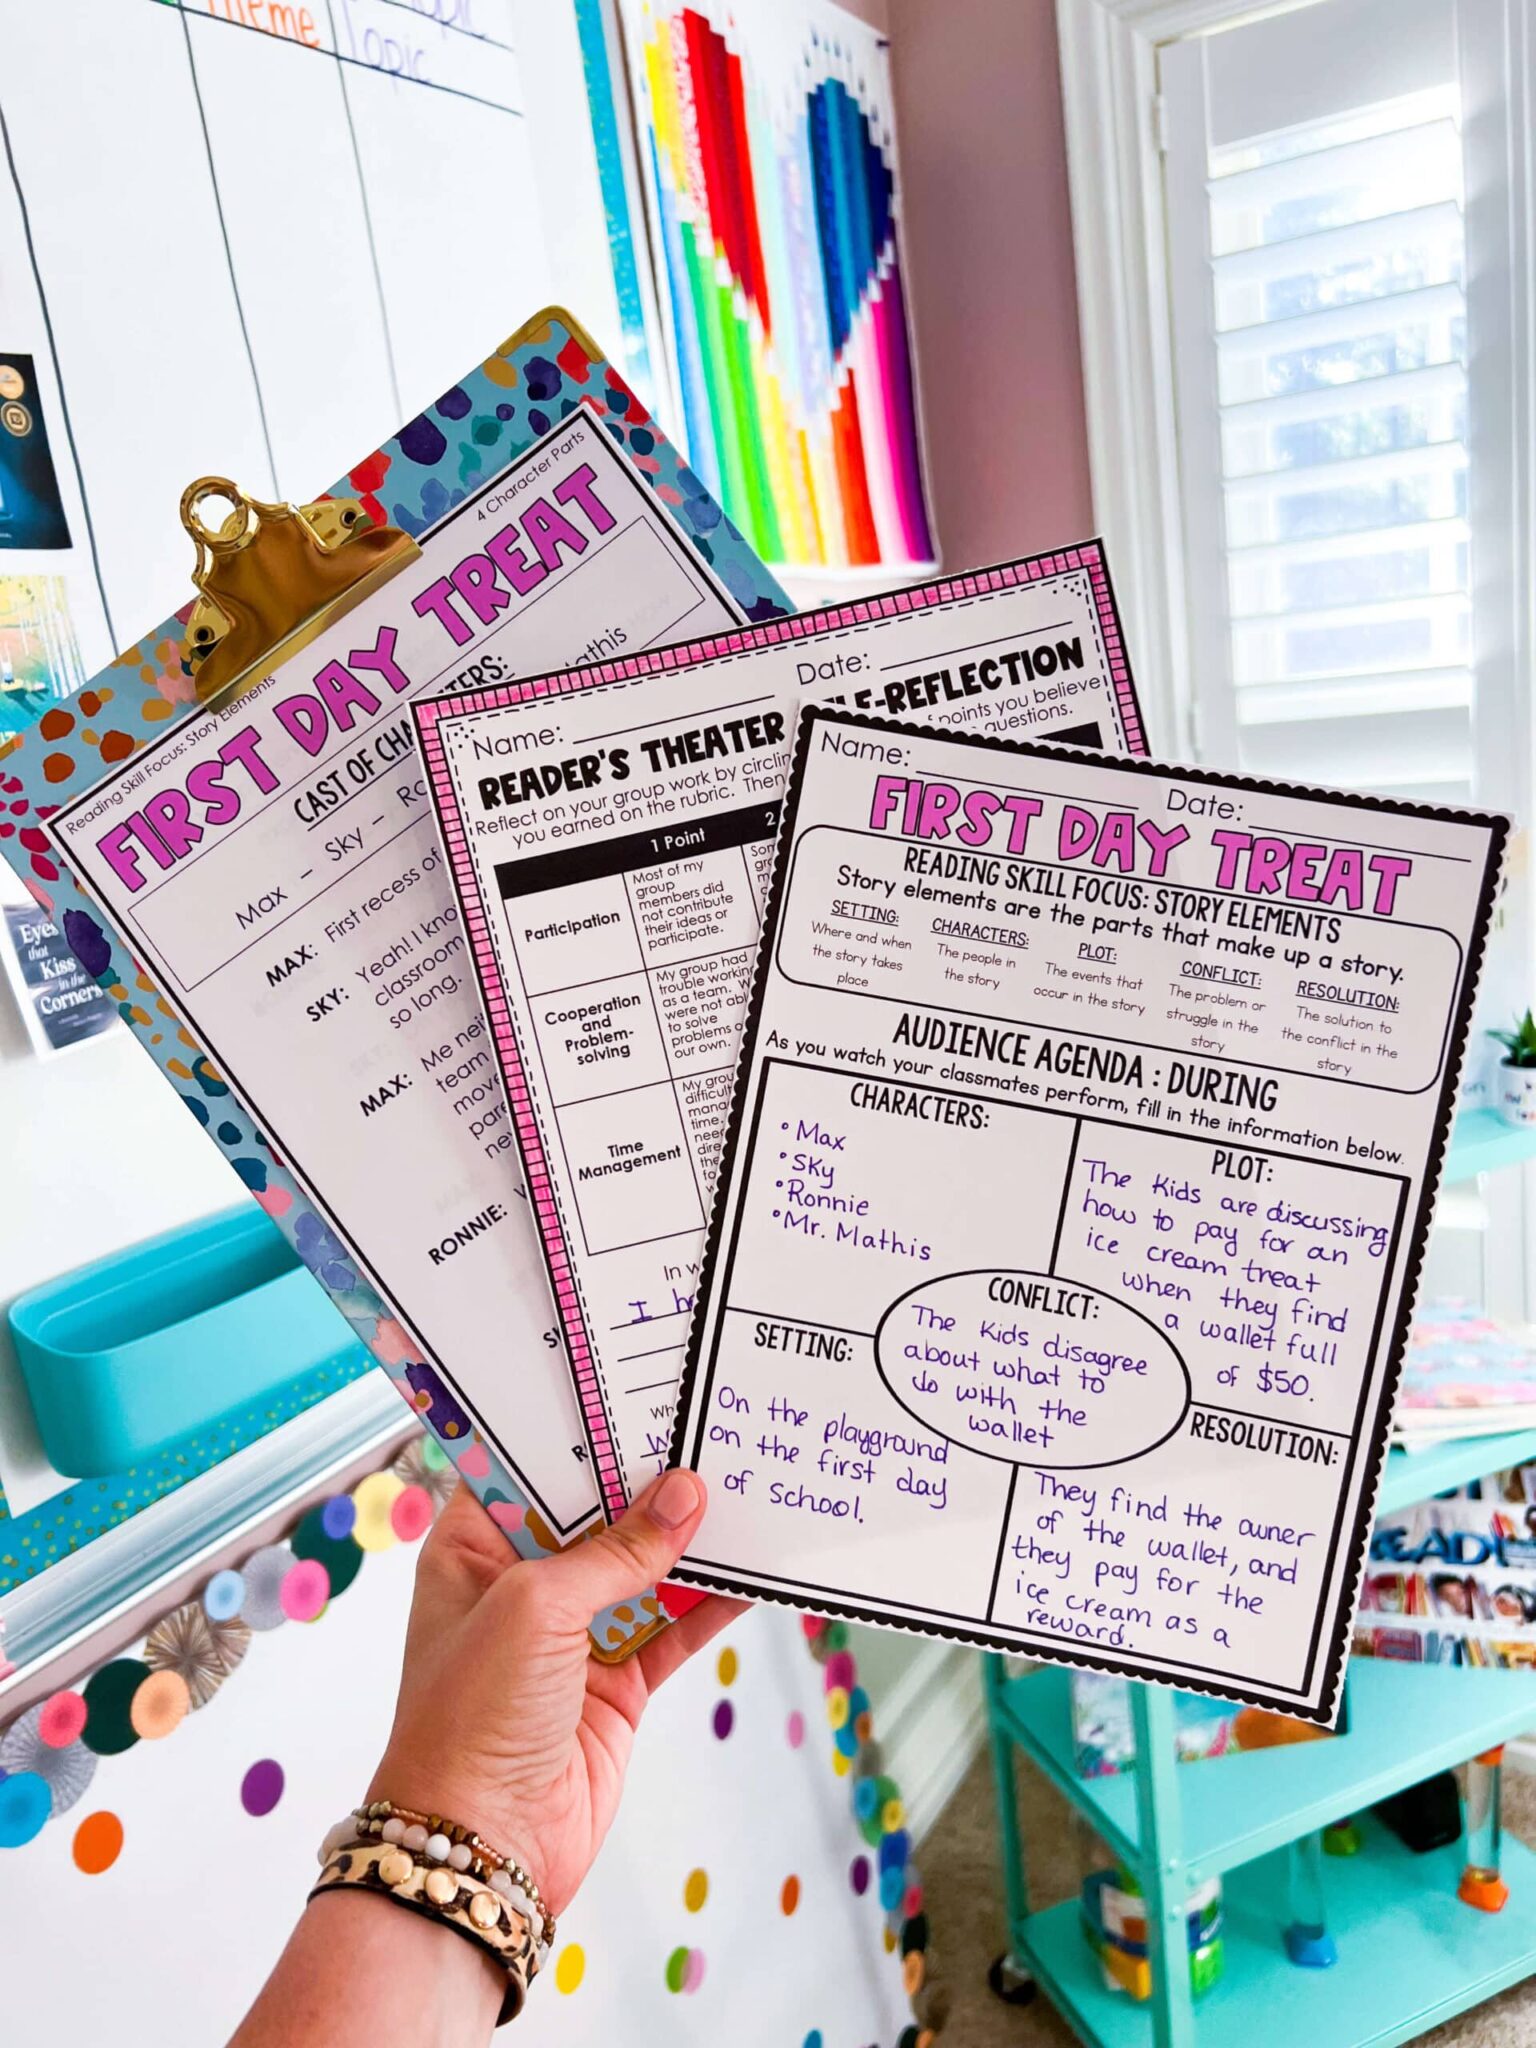 Theme
Topic
Topic
Eyes
that
Kiss
in the
Corners
Reading Skill Focus: Story Elements
4 Character Parts
FIRST DAY TREAT
CAST OF
Max – Sky –
MAX: First recess of
SKY: Yeah! I
classroom
so long.
MAX: Me
team
RONNIE:
Name: Date:
READER'S THEATER
Reflect on your group work by
points you believe
you earned on the rubric. Then
questions.
1 Point
2
Participation
Most of my
group
members did
not contribute
their ideas or
participate.
Cooperation
and
Problem-
solving
My group had
trouble
as a team.
were not
to solve
problems
our own.
Time
Management
My
time.
In
I
Name: Date:
FIRST DAY TREAT
READING SKILL FOCUS: STORY ELEMENTS
Story elements are the parts that make up a story.
SETTING:
Where and when
the story takes
place
CHARACTERS:
The people in
the story
PLOT:
The events that
occur in the story
CONFLICT:
The problem or
struggle in the
story
RESOLUTION:
The solution to
the conflict in the
story
AUDIENCE AGENDA : DURING
As you watch your classmates perform, fill in the information below.
CHARACTERS:
• Max
• Sky
• Ronnie
• Mr. Mathis
PLOT:
The kids are discussing
how to pay for an
ice cream treat
when they find
a wallet full
of $50.
CONFLICT:
The kids disagree
about what to
do with the
wallet
SETTING:
On the playground
on the first day
of school.
RESOLUTION:
They find the owner
of the wallet, and
they pay for the
ice cream as a
reward.